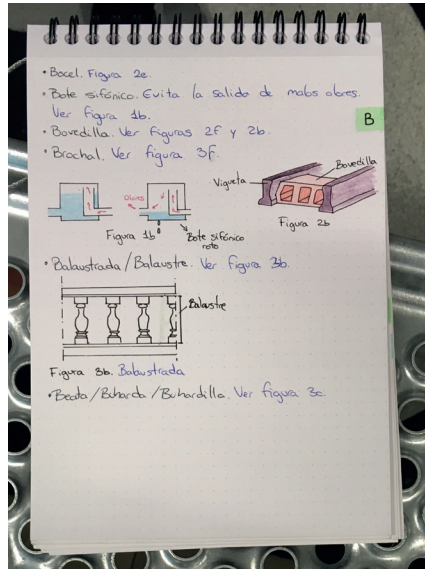 • Bocel. Figura 2e.
• Bote sifónico. Evita la salida de malos olores.
Ver figura 1b.
B
• Bovedilla. Ver figuras 2f y 2b.
• Brochal. Ver figura 3f.
Bovedilla
Vigueta
Olores
Figura 1b
Bote sifónico
roto
Figura 2b
• Balaustrada/Balaustre. Ver figura 3b.
Balaustre
Figura 3b. Balaustrada
• Beata/Buharda/Buhardilla. Ver figura 3c.